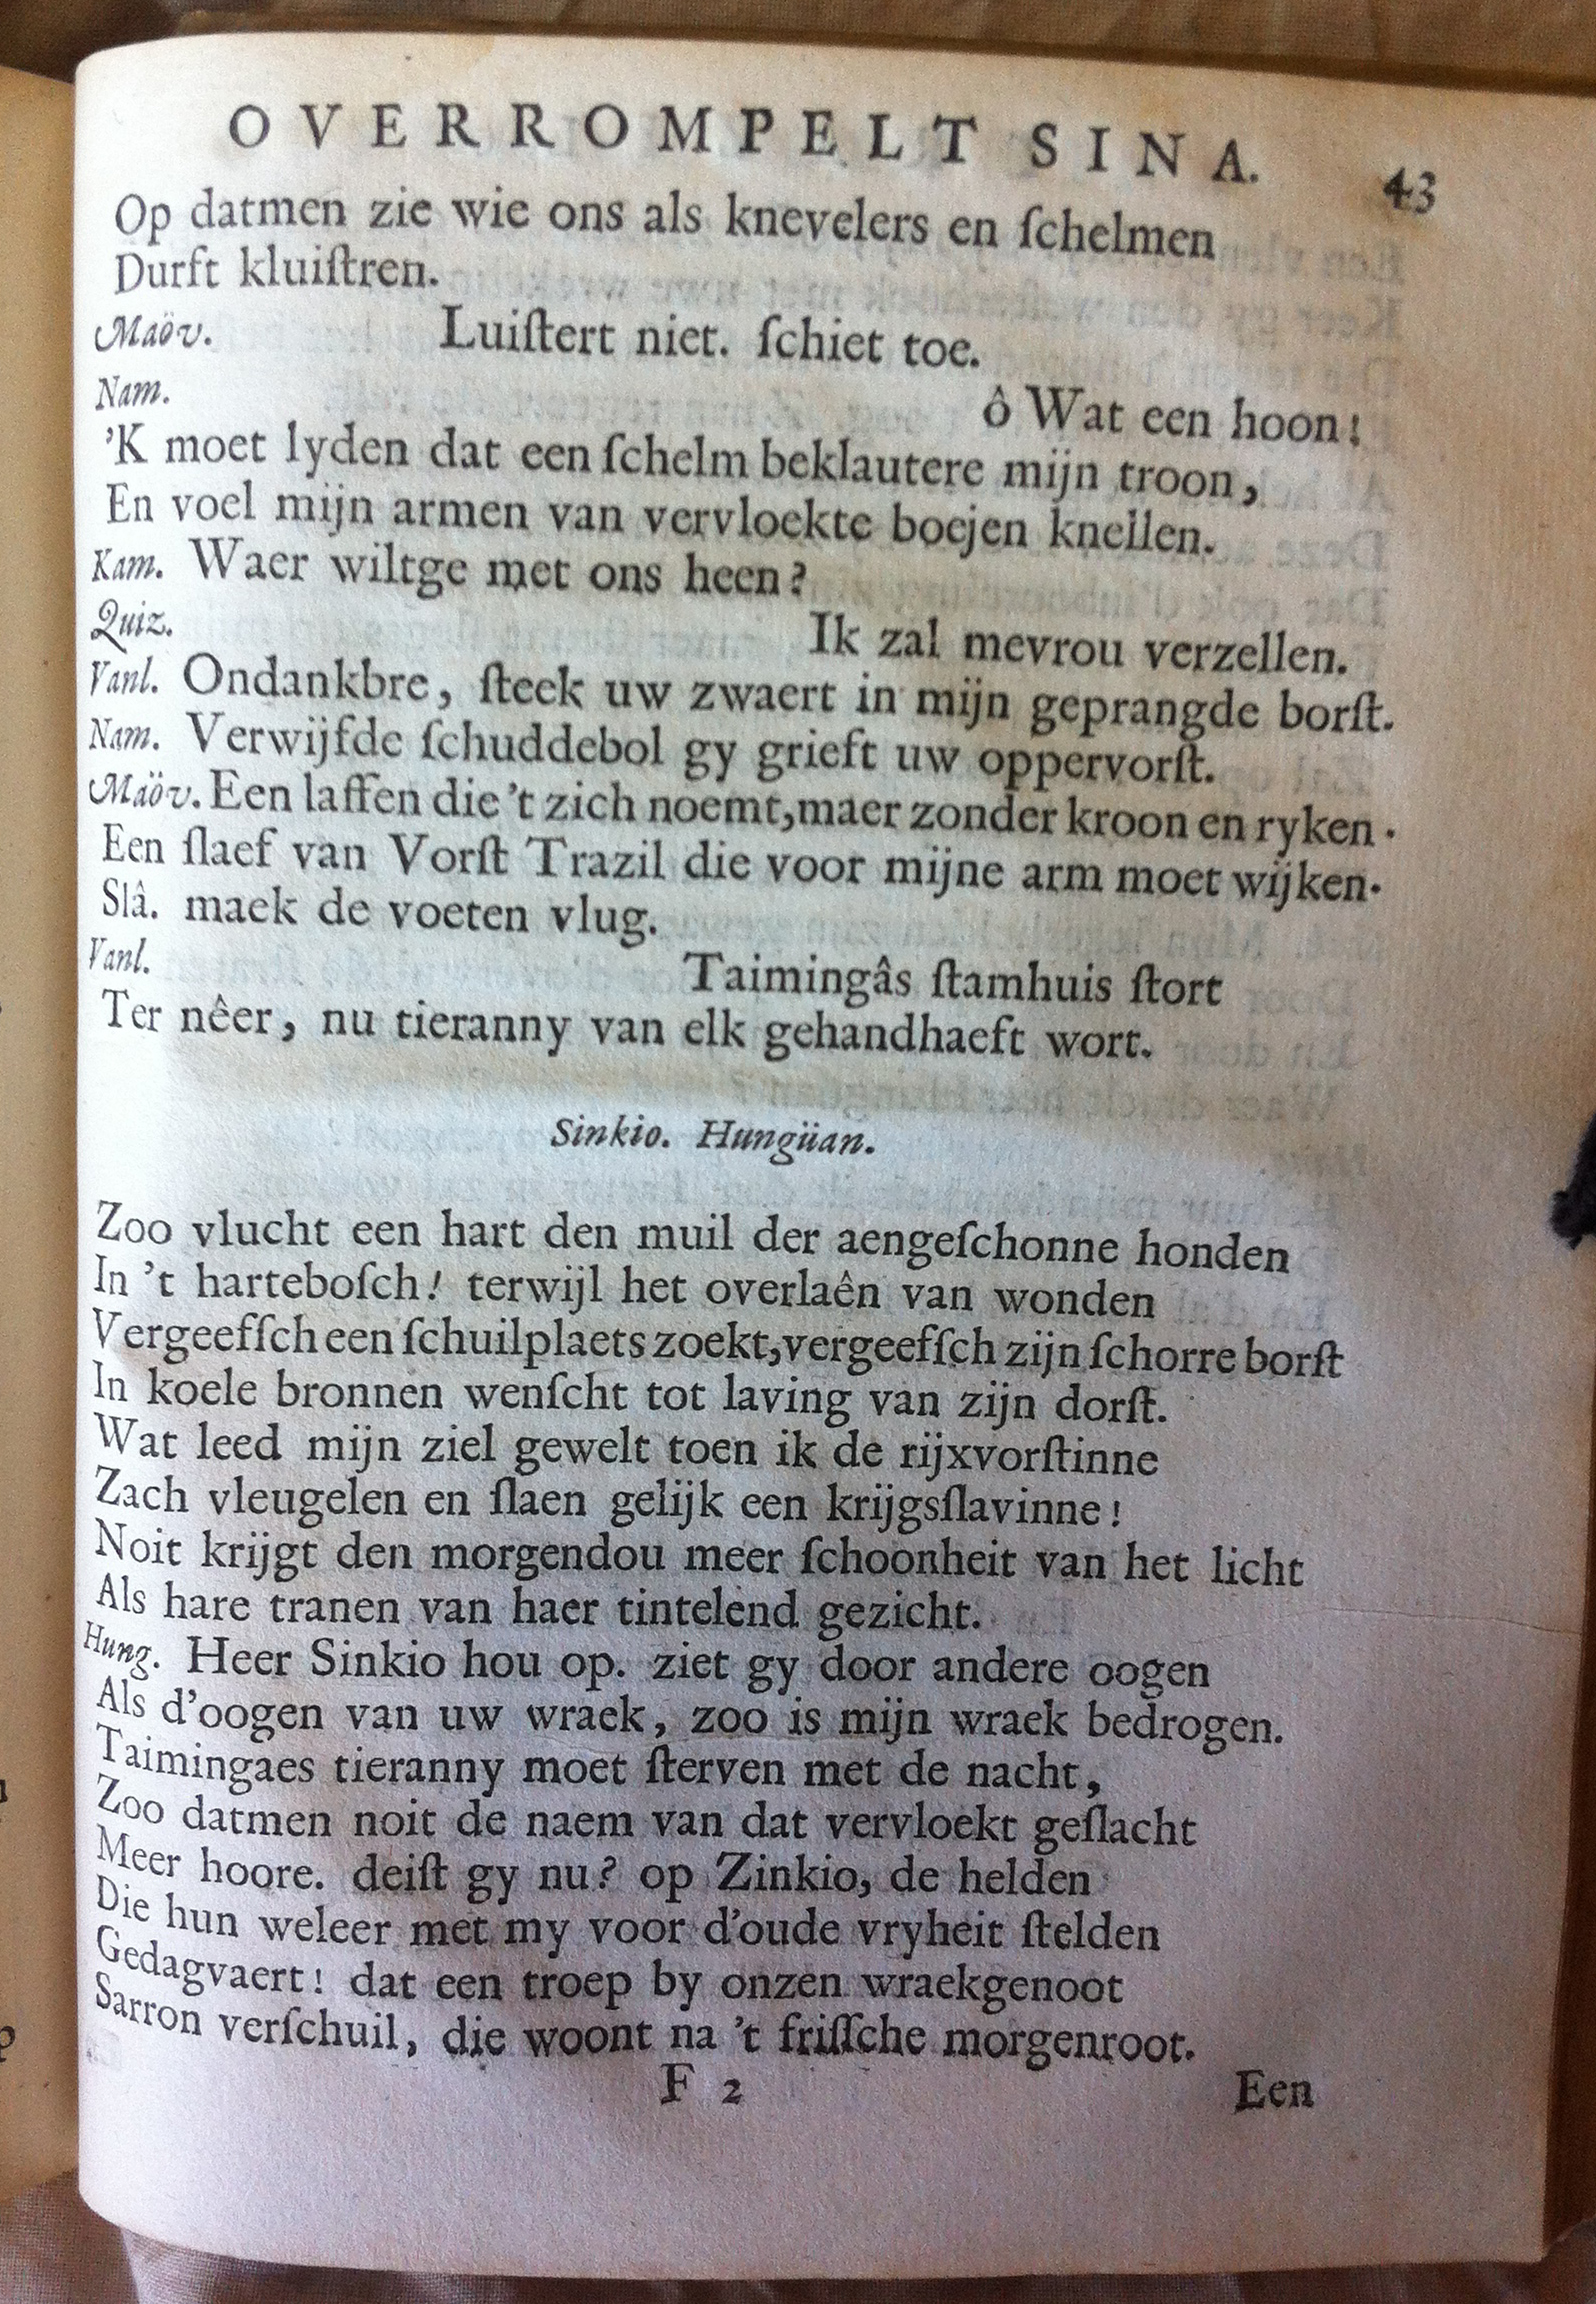 OVERROMPELT SINA. 43
Op datmen zie wie ons als knevelers en ſchelmen
Durft kluiſtren.
Maöv. Luiſtert niet. ſchiet toe.
Nam. ô Wat een hoon!
'K moet lyden dat een ſchelm beklautere mijn troon,
En voel mijn armen van vervloekte boejen knellen.
Kam. Waer wiltge met ons heen?
Quiz. Ik zal mevrou verzellen.
Vanl. Ondankbre, ſteek uw zwaert in mijn geprangde borſt.
Nam. Verwijfde ſchuddebol gy grieft uw oppervorſt.
Maöv. Een laffen die 't zich noemt, maer zonder kroon en ryken.
Een ſlaef van Vorſt Trazil die voor mijne arm moet wijken.
Slâ. maek de voeten vlug.
Vanl. Taimingâs ſtamhuis ſtort
Ter nêer, nu tieranny van elk gehandhaeft wort.
Sinkio. Hungüan.
Zoo vlucht een hart den muil der aengeſchonne honden
In 't harteboſch! terwijl het overlaên van wonden
Vergeefſch een ſchuilplaets zoekt, vergeefſch zijn ſchorre borſt
In koele bronnen wenſcht tot laving van zijn dorſt.
Wat leed mijn ziel gewelt toen ik de rijxvorſtinne
Zach vleugelen en ſlaen gelijk een krijgsſlavinne!
Noit krijgt den morgendou meer ſchoonheit van het licht
Als hare tranen van haer tintelend gezicht.
Hung. Heer Sinkio hou op. ziet gy door andere oogen
Als d'oogen van uw wraek, zoo is mijn wraek bedrogen.
Taimingaes tieranny moet ſterven met de nacht,
Zoo datmen noit de naem van dat vervloekt geſlacht
Meer hoore. deiſt gy nu? op Zinkio, de helden
Die hun weleer met my voor d'oude vryheit ſtelden
Gedagvaert! dat een troep by onzen wraekgenoot
Sarron verſchuil, die woont na 't friſſche morgenroot.
F 2 Een